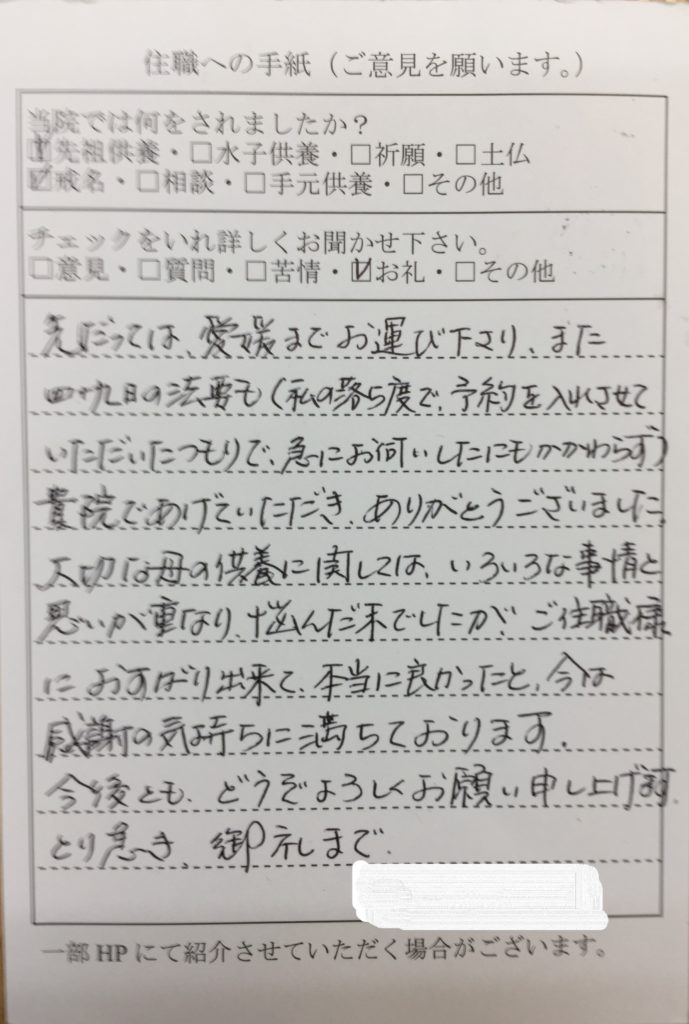 住職への手紙（ご意見を願います。）
当院では何をされましたか？
☑先祖供養・□水子供養・□祈願・□土仏
☑戒名・□相談・□手元供養・□その他
チェックをいれ詳しくお聞かせ下さい。
□意見・□質問・□苦情・☑お礼・□その他
先だっては、愛媛までお運び下さり、また
四十九日の法要も（私の落ち度で、予約を入れさせて
いただいたつもりで、急にお伺いしたにもかかわらず）
貴院であげていただき、ありがとうございました。
大切な母の供養に関しては、いろいろな事情と
思いが重なり、悩んだ末でしたが、ご住職様
におすがり出来て、本当に良かったと、今は
感謝の気持ちに満ちております。
今後とも、どうぞよろしくお願い申し上げます。
とり急ぎ、御礼まで。
一部HPにて紹介させていただく場合がございます。